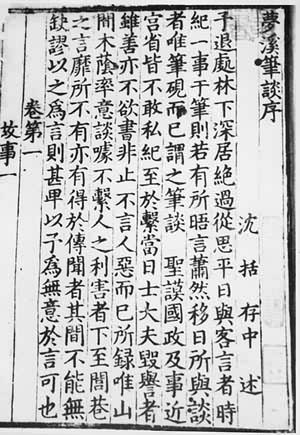 夢溪筆談序
沈括存中述
予退處林下深居絶過從思平日與客言者時
紀一事于筆則若有所晤言蕭然移日所與談
者唯筆硯而已謂之筆談　聖謨國政及事近
宫省皆不敢私紀至於繫當日士大夫毀譽者
雖善亦不欲書非止不言人惡而已所録唯山
間木蔭率意談噱不繫人之利害者下至閭巷
之言靡所不有亦有得於傳聞者其間不能無
缺謬以之爲言則甚卑以予爲無意於言可也
卷第一
故事一